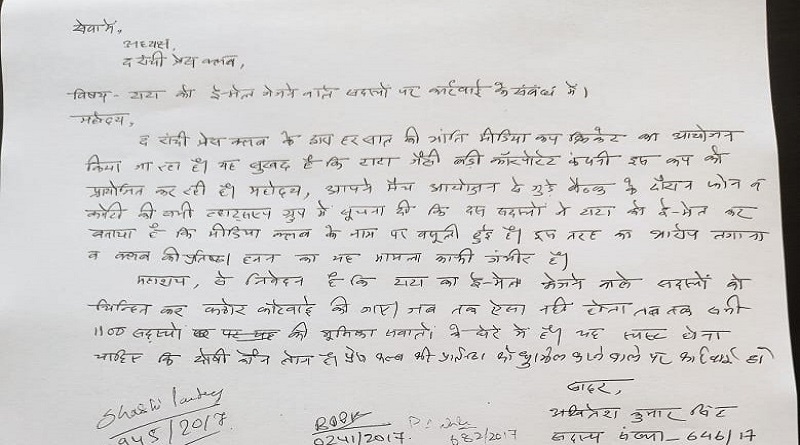 सेवा में,
अध्यक्ष,
द रांची प्रेस क्लब,
विषय - टाटा को ई-मेल भेजने वाले सदस्यों पर कार्रवाई के संबंध में।
महोदय,
द रांची प्रेस क्लब के द्वारा हर साल की भांति मीडिया कप क्रिकेट का आयोजन
किया जा रहा है। यह सुखद है कि टाटा जैसी बड़ी कॉरपोरेट कंपनी इस कप को
प्रायोजित कर रही है। महोदय, आपने मैच आयोजन से जुड़े बैठक के दौरान फोन व
कमेटी की बनी व्हाट्सएप ग्रुप में सूचना दी कि दस सदस्यों ने टाटा को ई-मेल कर
बताया है कि मीडिया क्लब के नाम पर वसूली हुई है। इस तरह का आरोप लगाना
व क्लब की प्रतिष्ठा हनन का यह मामला काफी गंभीर है।
महाशय, से निवेदन है कि टाटा का ई-मेल भेजने वाले सदस्यों को
चिन्हित कर कठोर कार्रवाई की जाए। जब तक ऐसा नहीं होता तब तक सभी
1100 सदस्यों की भूमिका सवालों के घेरे में है। यह स्पष्ट होना
चाहिए कि दोषी कौन लोग है। प्रेस क्लब की को धूमिल करने वाले पर कार्रवाई हो
सादर,
Shashi Pandey
945/2017
0241/2017.
682/2017
अखिलेश कुमार सिंह
सदस्य संख्या - 646/17